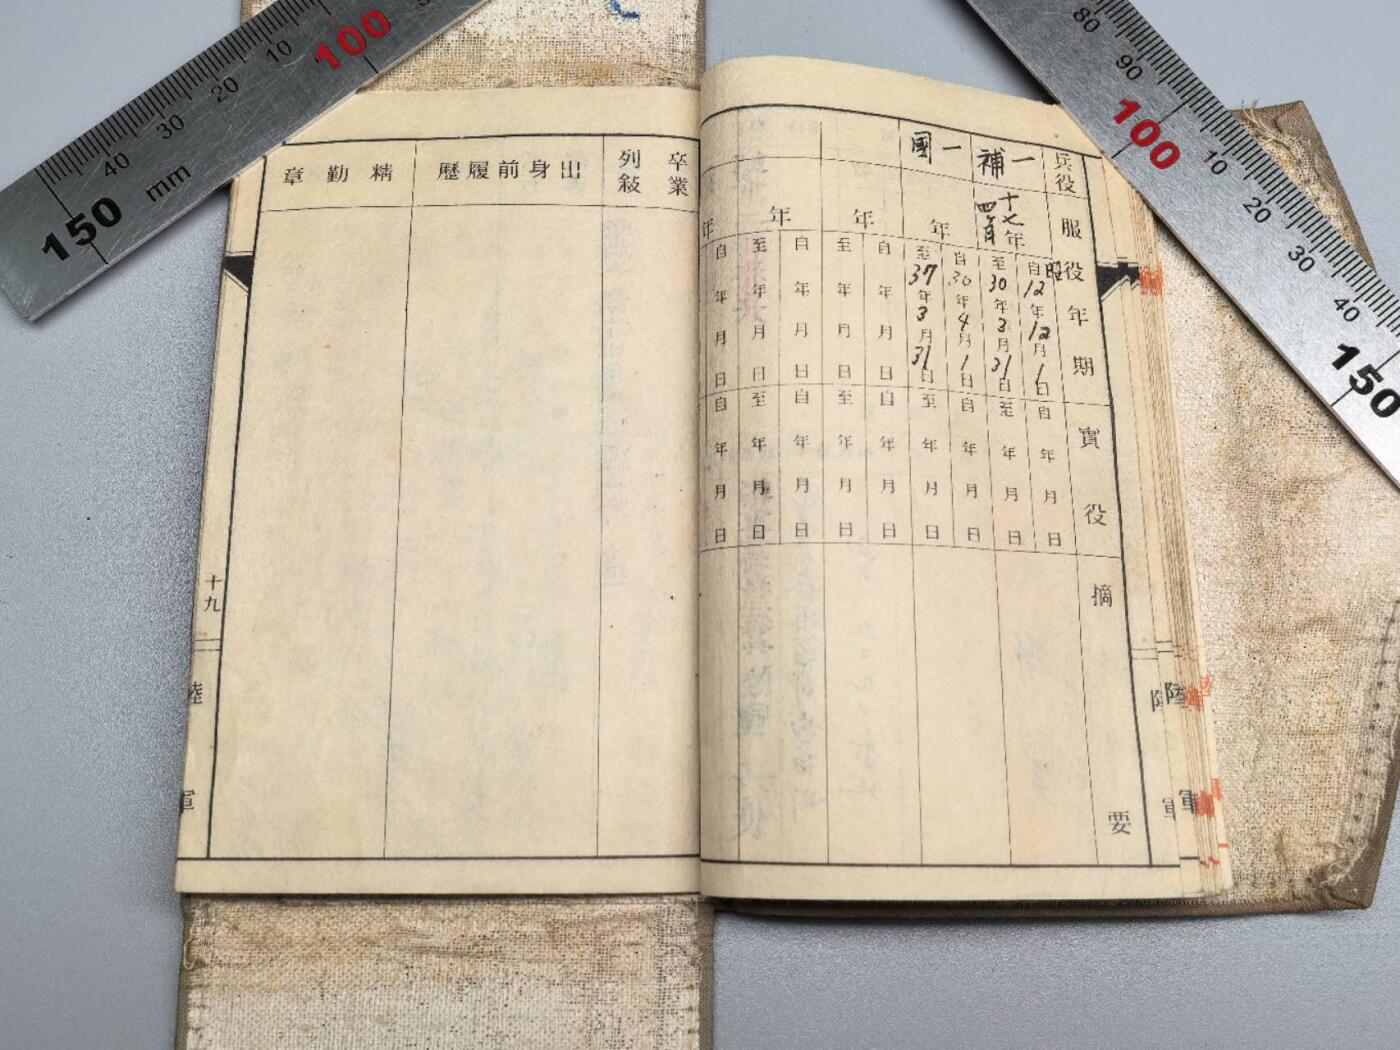 兵役
服役年期
實役
摘要
一補
十七年
四月
昭
自12年12月1日
至30年3月31日
自年月日
至年月日
一國
年
自30年4月1日
至37年3月31日
自年月日
至年月日
年
自年月日
至年月日
自年月日
至年月日
年
自年月日
至年月日
自年月日
至年月日
年
自年月日
自年月日
卒業
列敍
出身前履歷
精勤章
十九
陸軍
陸軍
10
20
30
40
mm
100
150
80
90
100
10
20
30
40
150